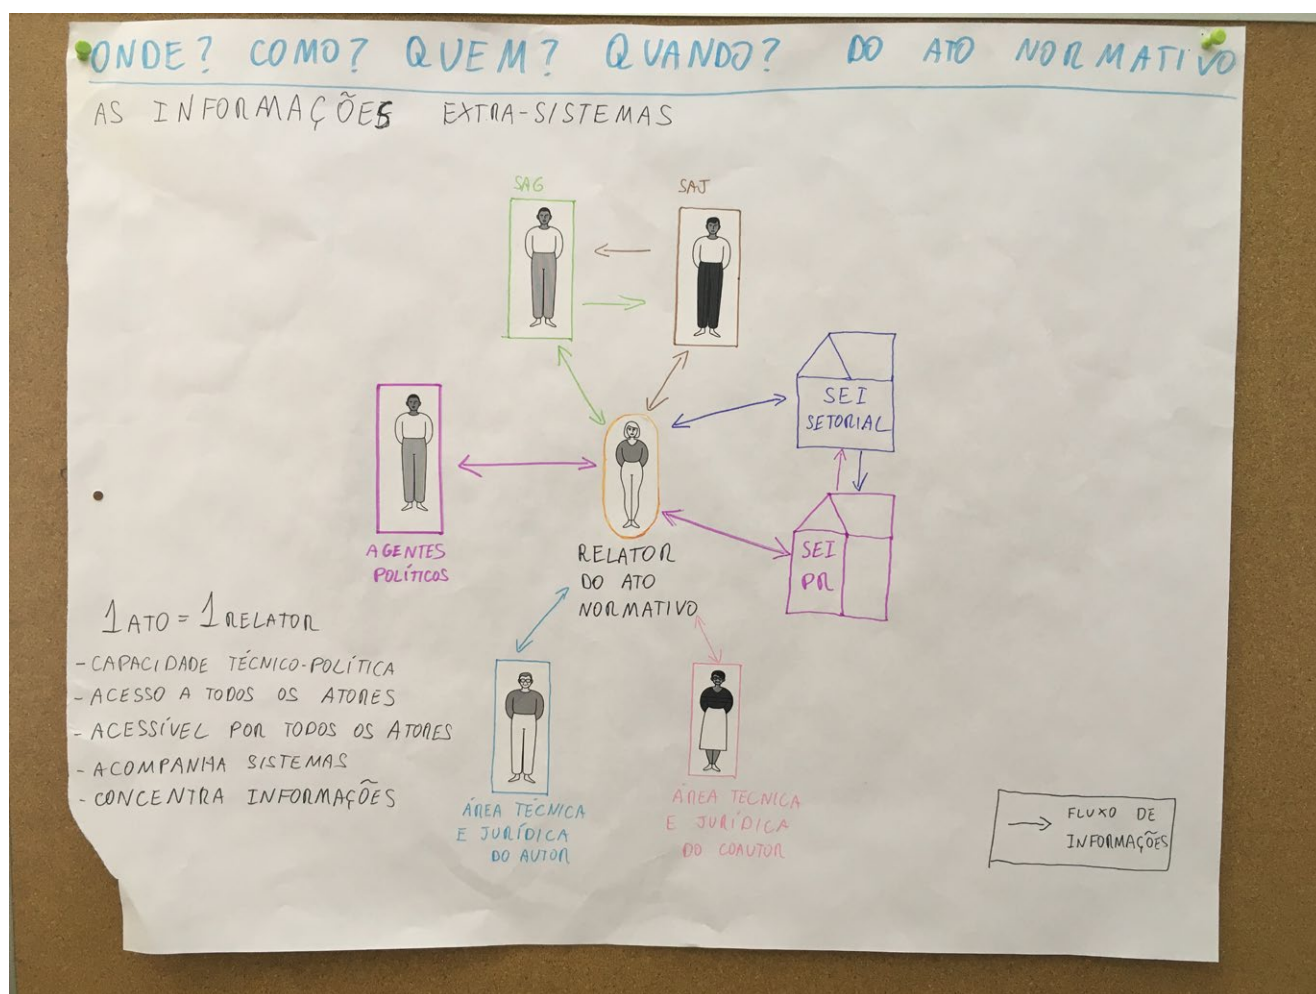 ONDE? COMO? QUEM? QUANDO? DO ATO NORMATIVO
AS INFORMAÇÕES EXTRA-SISTEMAS
SAG
SAJ
SEI
SETORIAL
SEI
PR
AGENTES
POLÍTICOS
RELATOR
DO ATO
NORMATIVO
1 ATO = 1 RELATOR
- CAPACIDADE TÉCNICO-POLÍTICA
- ACESSO A TODOS OS ATORES
- ACESSÍVEL POR TODOS OS ATORES
- ACOMPANHA SISTEMAS
- CONCENTRA INFORMAÇÕES
ÁREA TÉCNICA
E JURÍDICA
DO AUTOR
ÁREA TÉCNICA
E JURÍDICA
DO COAUTOR
FLUXO DE
INFORMAÇÕES